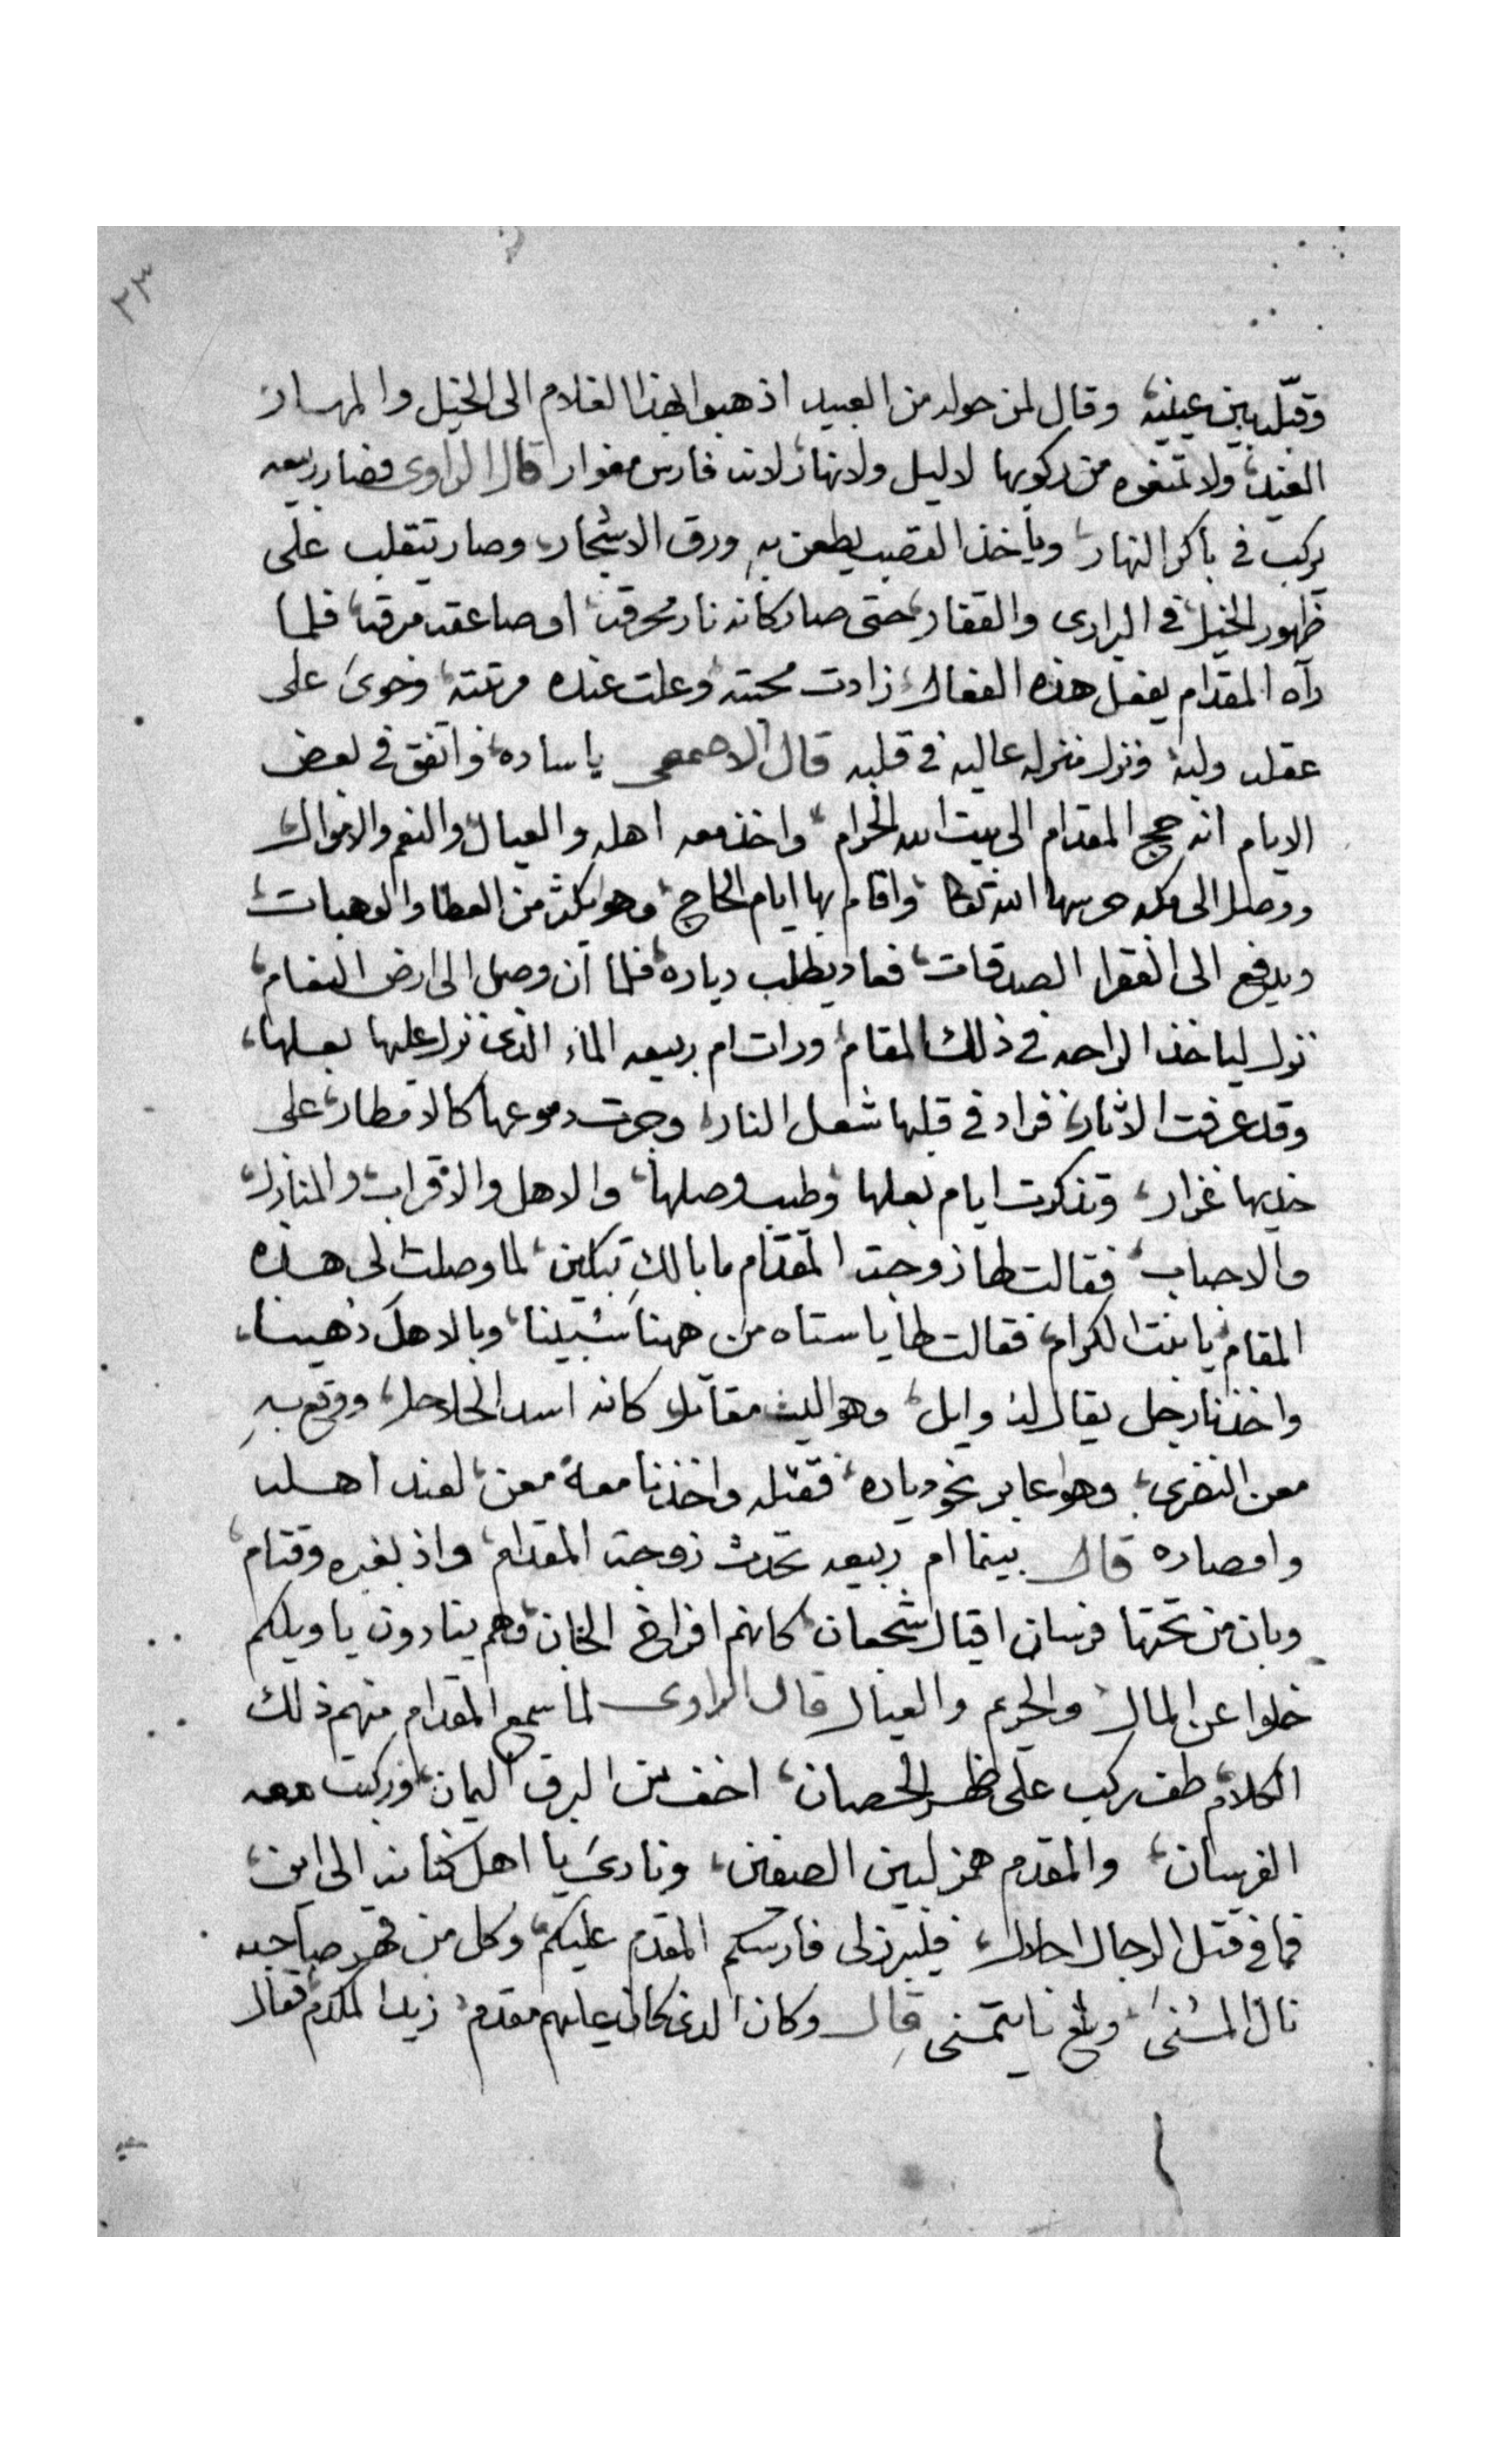 ٢٣
وقبّله بين عينيه وقال لمن حوله من العبيد اذهبوا بهذا الغلام الى الخيل والمهار
ولا تمنعوه من ركوبها لا ليل ولا نهار لانه فارس مغوار قال الراوى فصار ربيعه
يركب في باكر النهار وياخذ القصب يطعن به ورق الاشجار وصار يتقلب على
ظهور الخيل في البرارى والقفار حتى صار كانه نار محرقه او صاعقه مرقه فلما
رآه المقدام يفعل هذه الفعال زادت محبته وعلت عنده مرتبته وحوى على
عقله ولبه ونزل منزله عاليه في قلبه قال الاصمعى ياساده واتفق في بعض
الايام انه حج المقدام الى بيت الله الحرام واخذ معه اهله والعيال والنعم والاموال
ووصل الى مكه حرسها الله تعالا واقام بها ايام الحاج وهو يكثر من العطا والوهبات
ويدفع الى الفقرا الصدقات فعاد يطلب دياره فلما ان وصل الى ارض النعام
نزل لياخذ الراحه في ذلك المقام ورات ام ربيعه الماء الذى نزل عليها بعلها
وقد عرفت الاثار فزاد في قلبها شعل النار وجرت دموعها كالامطار على
خديها غزار وتذكرت ايام بعلها وطيب وصلها والاهل والاقراب والمنازل
والاحباب فقالت لها زوجت المقدام ما بالكِ تبكين لما وصلت الى هذه
المقام يا بنت الكرام فقالت لها يا ستاه من ههنا سُبينا وبالاهل ذهبنا
واخذنا رجل يقال له وايل وهو ليث مقاتل كانه اسد الحلاحل ووقع به
معن النضرى وهو عابر نحو دياره فقتله واخذنا معه معن لعند اهله
وامصاره قال بينما ام ربيعه تحدث زوجت المقدام واذ بغبره وقتام
وبان من تحتها فرسان اقيال شجعان كانهم افراخ الجان وهم ينادون يا ويلكم
خلوا عن المال والحريم والعيال قال الراوى لما سمع المقدام منهم ذلك
الكلام طفر ركب على ظهر الحصان اخف من البرق اليمان وركبت معه
الفرسان والمقدم همز لبين الصفين ونادىَ يا اهل كنانه الى اين
فما في قتل الرجال احلال فليبرز لى فارسكم المقدم عليكم وكل من قهر صاحبه
نال المُنىَ وبلغ ما يتمنى قال وكان الذى كان عليهم مقدم زيد المكدم فقال